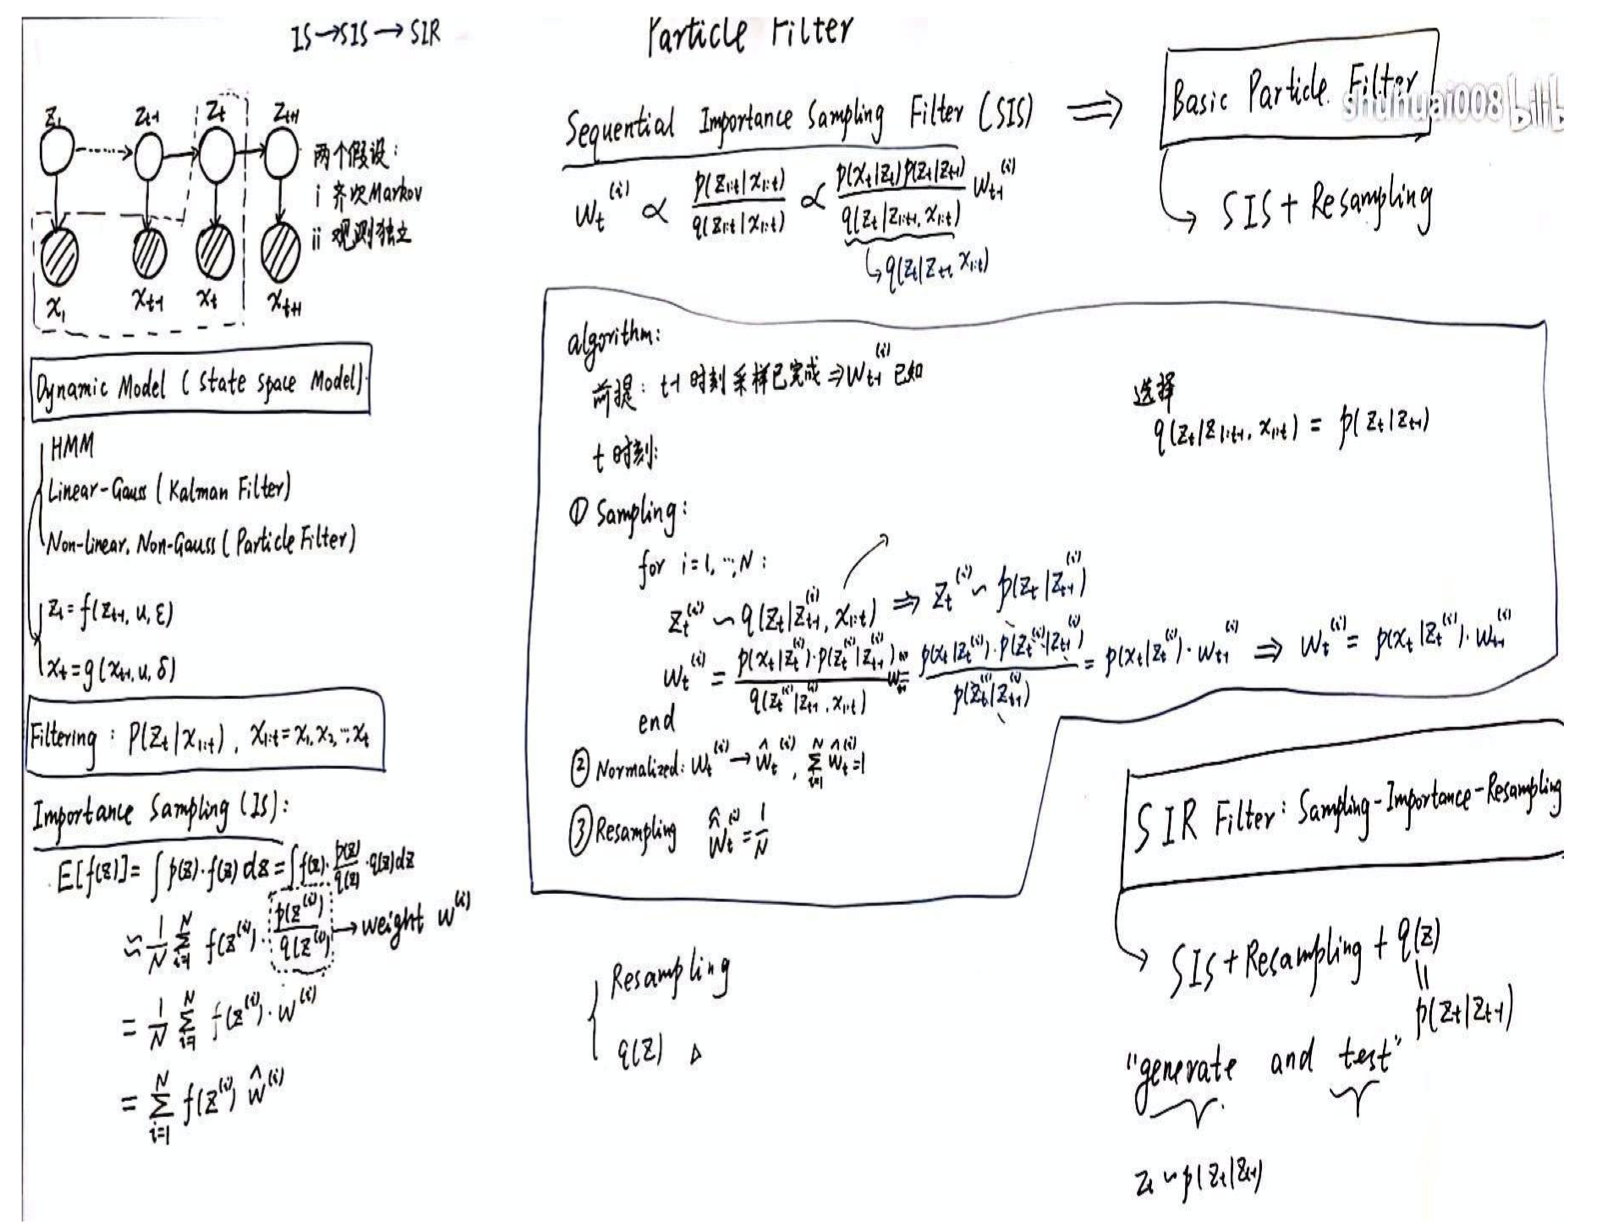 IS→SIS→SIR
Particle Filter
z₁ zₜ₋₁ zₜ zₜ₊₁
x₁ xₜ₋₁ xₜ xₜ₊₁
两个假设:
i 齐次Markov
ii 观测独立
Dynamic Model (State space Model)
HMM
Linear-Gauss (Kalman Filter)
Non-linear, Non-Gauss (Particle Filter)
zₜ = f(zₜ₋₁, u, ε)
xₜ = g(xₜ₋₁, u, δ)
Filtering: P(zₜ|x₁:ₜ), x₁:ₜ = x₁, x₂, …, xₜ
Importance Sampling (IS):
E[f(z)] = ∫ p(z)·f(z) dz = ∫ f(z)·p(z)/q(z)·q(z) dz
≈ 1/N Σᵢ₌₁ᴺ f(z⁽ⁱ⁾)·p(z⁽ⁱ⁾)/q(z⁽ⁱ⁾) → weight w⁽ⁱ⁾
= 1/N Σᵢ₌₁ᴺ f(z⁽ⁱ⁾)·w⁽ⁱ⁾
= Σᵢ₌₁ᴺ f(z⁽ⁱ⁾) ŵ⁽ⁱ⁾
Sequential Importance Sampling Filter (SIS) ⇒
wₜ⁽ⁱ⁾ ∝ p(z₁:ₜ|x₁:ₜ)/q(z₁:ₜ|x₁:ₜ) ∝ p(xₜ|zₜ)p(zₜ|zₜ₋₁)/q(zₜ|z₁:ₜ₋₁, x₁:ₜ) wₜ₋₁⁽ⁱ⁾
↳ q(zₜ|zₜ₋₁, x₁:ₜ)
Basic Particle Filter
shuhuai008 bilib
↳ SIS + Resampling
algorithm:
前提: t-1 时刻采样已完成 ⇒ wₜ₋₁⁽ⁱ⁾ 已知
t 时刻:
① Sampling:
for i=1, …, N:
zₜ⁽ⁱ⁾ ~ q(zₜ|zₜ₋₁⁽ⁱ⁾, x₁:ₜ) ⇒ zₜ⁽ⁱ⁾ ~ p(zₜ|zₜ₋₁⁽ⁱ⁾)
wₜ⁽ⁱ⁾ = p(xₜ|zₜ⁽ⁱ⁾)·p(zₜ⁽ⁱ⁾|zₜ₋₁⁽ⁱ⁾)/q(zₜ⁽ⁱ⁾|zₜ₋₁⁽ⁱ⁾, x₁:ₜ) wₜ₋₁⁽ⁱ⁾ = p(xₜ|zₜ⁽ⁱ⁾)·p(zₜ⁽ⁱ⁾|zₜ₋₁⁽ⁱ⁾)/p(zₜ⁽ⁱ⁾|zₜ₋₁⁽ⁱ⁾) = p(xₜ|zₜ⁽ⁱ⁾)·wₜ₋₁⁽ⁱ⁾ ⇒ wₜ⁽ⁱ⁾ = p(xₜ|zₜ⁽ⁱ⁾)·wₜ₋₁⁽ⁱ⁾
end
② Normalized: wₜ⁽ⁱ⁾ → ŵₜ⁽ⁱ⁾, Σᵢ₌₁ᴺ ŵₜ⁽ⁱ⁾ = 1
③ Resampling ŵₜ⁽ⁱ⁾ = 1/N
选择
q(zₜ|z₁:ₜ₋₁, x₁:ₜ) = p(zₜ|zₜ₋₁)
Resampling
q(z) △
SIR Filter: Sampling-Importance-Resampling
↳ SIS + Resampling + q(z)
=
p(zₜ|zₜ₋₁)
"generate and test"
zₜ ~ p(zₜ|zₜ₋₁)